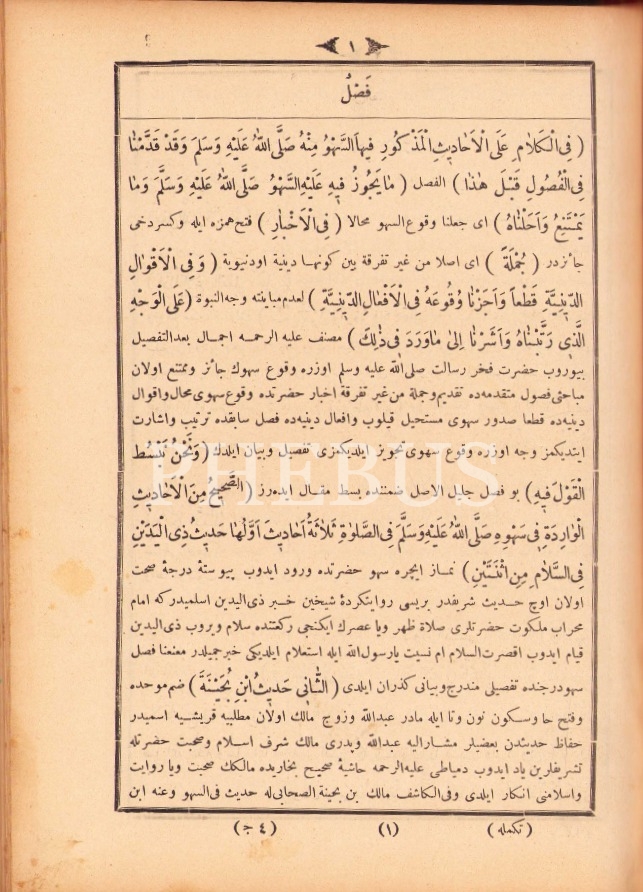 ١
فَصْلٌ
( فِى الْكَلَامِ عَلَى الْاَحَادِيثِ الْمَذْكُورِ فِيهَا السَّهْوُ مِنْهُ صَلَّى اللهُ عَلَيْهِ وَسَلَّمَ وَقَدْ قَدَّمْنَا
فِى الْفُصُولِ قَبْلَ هٰذَا ) الفصل ( مَا يَجُوزُ فِيهِ عَلَيْهِ السَّهْوُ صَلَّى اللهُ عَلَيْهِ وَسَلَّمَ وَمَا
يَمْتَنِعُ وَاَحَلْنَاهُ ) اى جعلنا وقوع السهو محالا ( فِى الْاَخْبَارِ ) فتح همزه ايله وكسر دخى
جائزدر ( جُمْلَةً ) اى اصلا من غير تفرقة بين كونها دينية او دنيوية ( وَفِى الْاَقْوَالِ
الدِّينِيَّةِ قَطْعاً وَاَجَزْنَا وُقُوعَهُ فِى الْاَفْعَالِ الدِّينِيَّةِ ) لعدم مباينته وجه النبوة ( عَلَى الْوَجْهِ
الَّذِى رَتَّبْنَاهُ وَاَشَرْنَا اِلٰى مَاوَرَدَ فِى ذٰلِكَ ) مصنف عليه الرحمه اجمال بعد التفصيل
بيوروب حضرت فخر رسالت صلى الله عليه وسلم اوزره وقوع سهوك جائز وممتنع اولان
مباحثى فصول متقدمه ده تقديم وجملة من غير تفرقة اخبار حضرتده وقوع سهوى محال واقوال
دينيه ده قطعا صدور سهوى مستحيل قيلوب وافعال دينيه ده فصل سابقده ترتيب واشارت
ايتديكمز وجه اوزره وقوع سهوى تجويز ايلديكمزى تفصيل وبيان ايلدك ( وَنَحْنُ نَبْسُطُ
الْقَوْلَ فِيهِ ) بو فصل جليل الاصل ضمننده بسط مقال ايده رز ( الصَّحِيحُ مِنَ الْاَحَادِيثِ
الْوَارِدَةِ فِى سَهْوِهِ صَلَّى اللهُ عَلَيْهِ وَسَلَّمَ فِى الصَّلٰوةِ ثَلَاثَةُ اَحَادِيثَ اَوَّلُهَا حَدِيثُ ذِى الْيَدَيْنِ
فِى السَّلَامِ مِنِ اثْنَتَيْنِ ) نماز ايچره سهو حضرتده ورود ايدوب پيوستۀ درجۀ صحت
اولان اوچ حديث شريفدر بريسى روايتكردۀ شيخين خبر ذى اليدين اسلميدر كه امام
محراب ملكوت حضرتلرى صلاة ظهر ويا عصرك ايكنجى ركعتنده سلام ويروب ذى اليدين
قيام ايدوب اقصرت السلام ام نسيت يارسول الله ايله استعلام ايلديكى خبر جميلدر معنعنا فصل
سهودرجنده تفصيلى مندرج وبيانى كذران ايلدى ( الثَّانِى حَدِيثُ ابْنِ بُحَيْنَةَ ) ضم موحده
وفتح حا وسكون نون وتا ايله مادر عبدالله وزوج مالك اولان مطلبيه قريشيه اسميدر
حفاظ حديثدن بعضيلر مشار اليه عبدالله وپدرى مالك شرف اسلام وصحبت حضرتله
تشريفلرين ياد ايدوب دمياطى عليه الرحمه حاشيۀ صحيح بخاريده مالكك صحبت ويا روايت
واسلامنى انكار ايلدى وفى الكاشف مالك بن بحينة الصحابى له حديث فى السهو وعنه ابن
( تكمله ) (١) ( ٤ ج )
PHEBUS